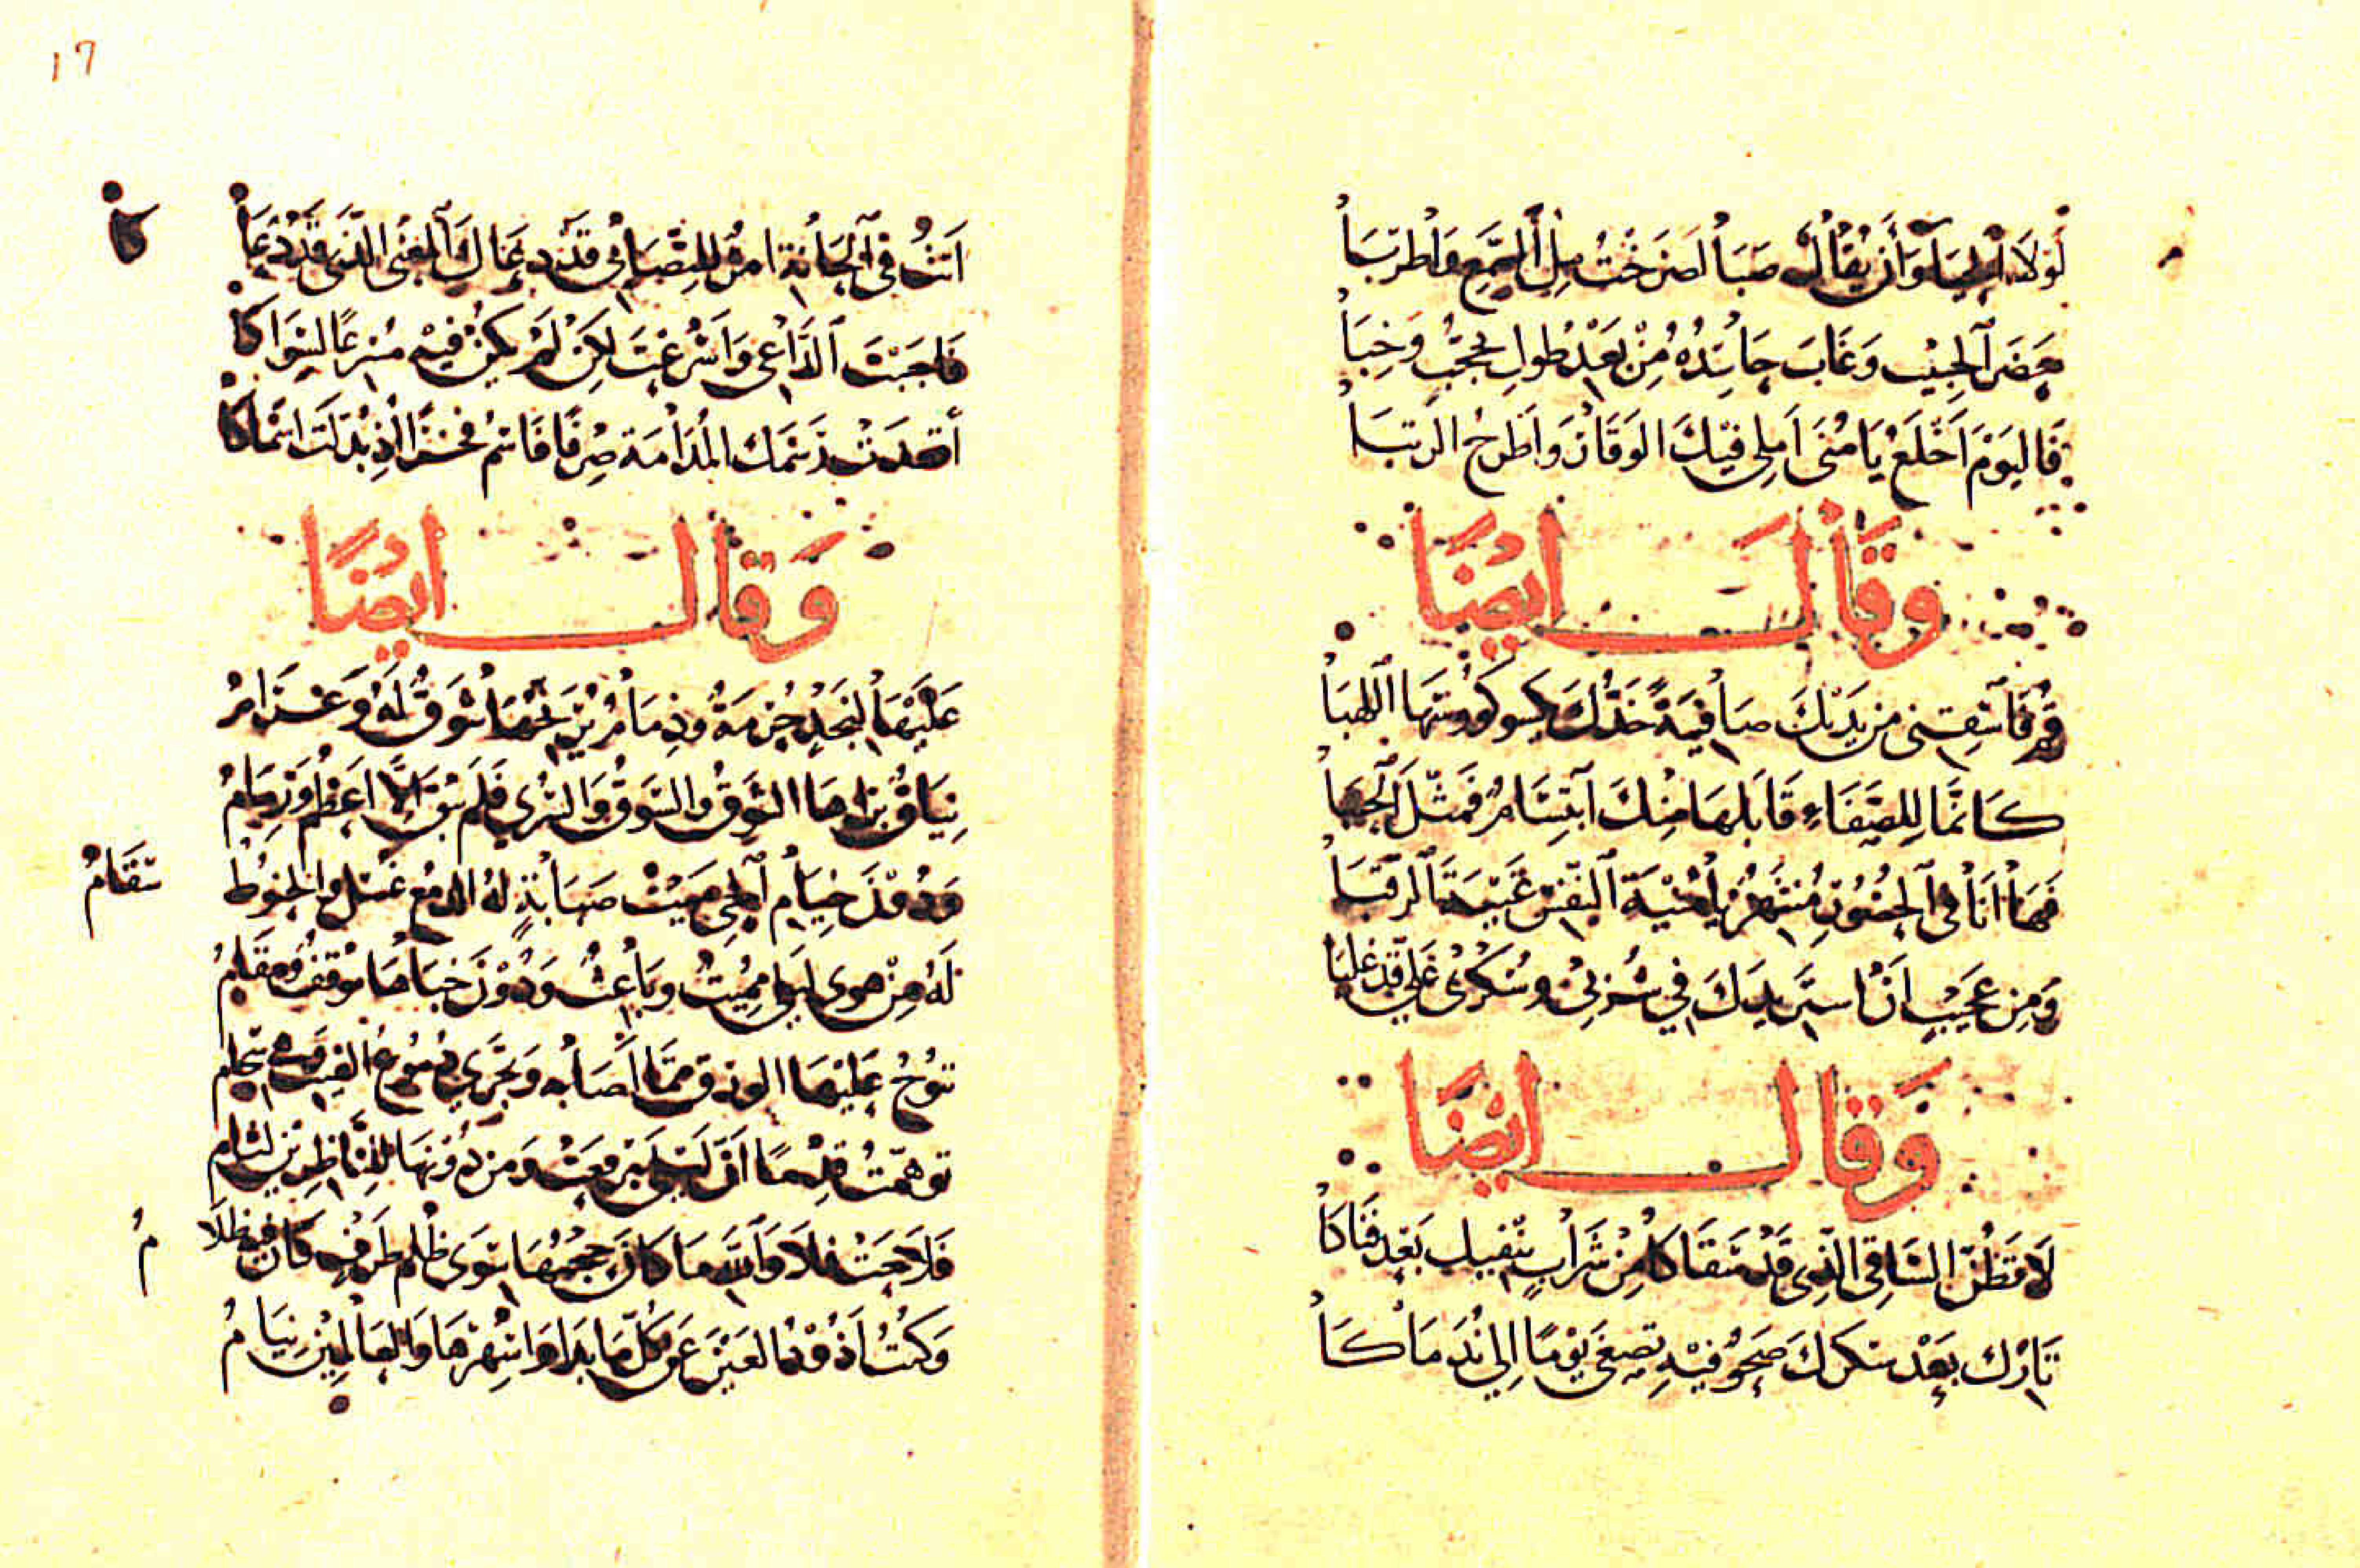 لَوْلَا الْحَيَا وَأَنْ يُقَالَ صَبَا لَصَرَخْتُ مِلَ السَّمْعِ وَاطَرَبَا
حَضَرَ الْحَبِيبُ وَغَابَ حَاسِدُهُ مِنْ بَعْدِ طُولِ تَحَجُّبٍ وَخِبَا
فَالْيَوْمَ اَخْلَعُ يَا مُنَى اَمَلِي فِيكَ الْوَقَارَ وَاَطْرَحُ الرُّتَبَا
وَقَالَ اَيْضًا
قُمْ فَاسْقِنِي مِنْ يَدَيْكَ صَافِيَةً خَدُّكَ يَكْسُو كُؤُسَهَا اللَّهَبَا
كَانَّمَا لِلصَّفَاءِ قَابَلَهَا مِنْكَ ابْتِسَامٌ فَمَثَّلَ الْحَبَبَا
فَهَا اَنَا فِي الْحُضُورِ مُشْتَهِرٌ يَا مُنْيَةَ النَّفْسِ غَيِّبِ الرُّقَبَا
وَمِنْ عَجِيبٍ اَنَا اَسِيرُ يَدَيْكَ فِي شُرْبِي وَسُكْرِي عَلَيَّ قَدْ غَلَبَا
وَقَالَ اَيْضًا
لَا تَظُنَّ السَّاقِي الَّذِي قَدْ سَقَاكَا مِنْ شَرَابٍ بَعْدَ فَنَاكَا
تَارِك بَعْدَ سُكْرِكَ صَحْوٌ فِيهِ تَصْغَى يَوْمًا اِلَى نُدَمَاكَا
١٦
اَنْتَ فِي الْحَانَةِ امْرُؤٌ لِلتَّصَابِي قَدْ دَعَاكَ الْمَعْنَى الَّذِي قَدْ دَعَا
كَا
فَاَجَبْتَ الدَّاعِي وَاَسْرَعْتَ لَكِنْ لَمْ يَكُنْ فِيهِ مُسْرِعًا لِسِوَاكَا
اَفْقَدَتْ رَسْمَكَ الْمُدَامَةُ صِرْفًا فَاسْمُ فَخْرًا اِذْ بَدَّلَتْ اَسْمَاكَا
وَقَالَ اَيْضًا
عَلَيْهَا لِنَجْدٍ حُرْمَةٌ وَذِمَامُ شَوْقٌ لَهُ وَغَرَامُ
نِيَاقٌ بَرَاهَا الشَّوْقُ وَالسَّوْقُ وَالسُّرَى فَلَمْ يَبْقَ اِلَّا اَعْظُمٌ وَزِمَامُ
وَدُونَ خِيَامِ الْحَيِّ مَيْتُ صَبَابَةٍ لَهُ الدَّمْعُ غُسْلٌ وَالْحَنُوطُ
سَقَامُ
لَهُ مِنْ هَوَى لَيْلَى مُمِيتٌ وَبَاعِثٌ وَدُونَ خِبَاهَا مَوْقِفٌ وَمَقَامُ
تَنُوحُ عَلَيْهَا الْوُرْقُ مِمَّا اَصَابَهُ وَتَجْرِي دُمُوعُ الْغَيْثِ
تَوَهَّمْتُ قِدْمًا اَنَّ لَيْلَى تَبَرْقَعَتْ وَمِنْ دُونِهَا لِلنَّاظِرِينَ لِثَامُ
فَلَاحَتْ فَلَا وَاللَّهِ مَا كَانَ حَجْبُهَا سِوَى ظُلْمِ طَرْفٍ كَانَ فِيهِ ظَلَا
مُ
وَكُنْتُ اَذُودُ الْعَيْنَ عَنْ كُلِّ مَا بَدَا وَاَسْهِرُهَا وَالْعَالَمِينَ نِيَامُ